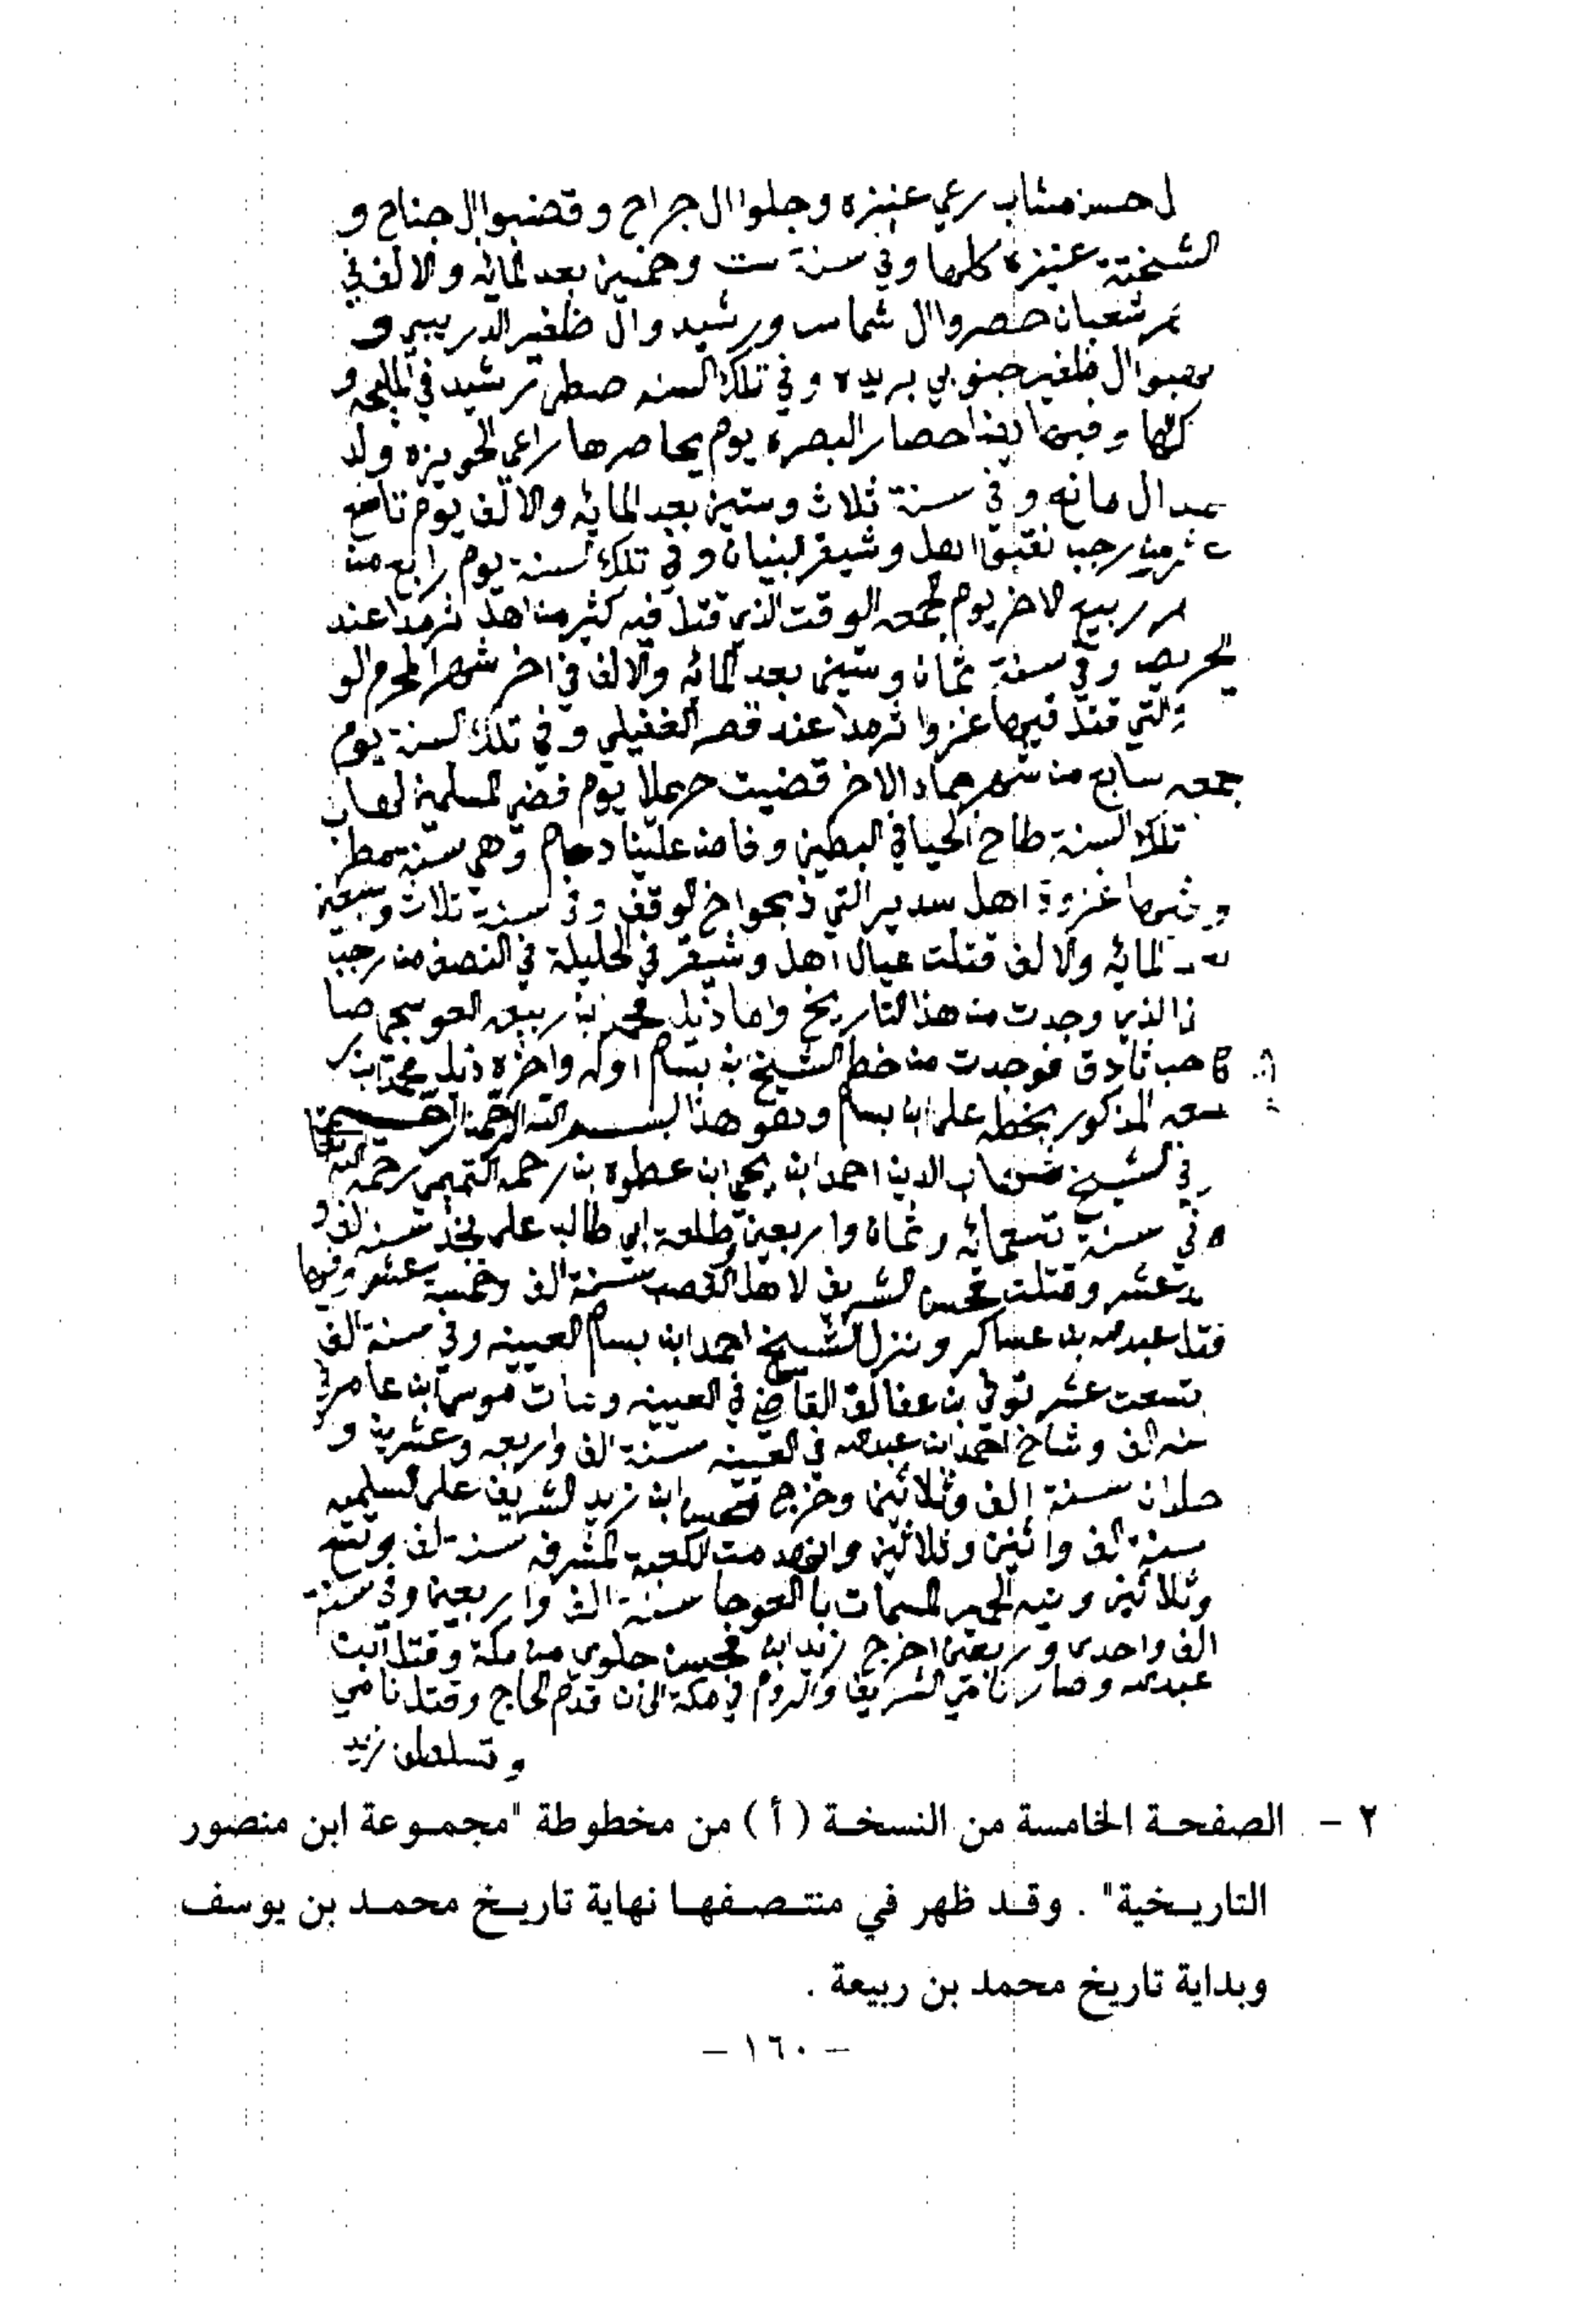 حسن مشاب رعي عنيزه وجلوا ال جراح وقضبوا ال جناح و
الشختة عنيزه كلها وفي سنة ست وخمسين بعد المائه والالف في
شعبان حصروا ال شماس ورشيد وال ظفير الدريبي و
ال ظفير جنوبي بريده وفي تلك السنه رشيد في المليحه و
وفيها ايضا حصار البصره يوم يحاصرها راعي الحويزه ولد
ال مانع وفي سنة ثلاث وستين بعد المائه والالف يوم تاسع
من رجب اهل وشيقر البنيان وفي تلك السنة يوم رابع من
ربيع الاخر يوم الجمعه الوقت الذي قتل فيه كثير من اهل ثرمدا عند
وفي سنة ثمان وستين بعد المائه والالف في اخر شهر المحرم الو
التي قتل فيها غزوا ثرمدا عند قصر الغفيلي وفي تلك السنة يوم
جمعه سابع من شهر جماد الاخر قضيت حريملا يوم
تلك السنة طاح الحيا في البطين علينا دهام وهي سنة مطر
وفيها غزوة اهل سدير التي ذبحوا في الوقف وفي سنة ثلاث وسبعين
المائه والالف قتلت عيال اهل وشيقر في الحليلة في النصف من رجب
الذي وجدت من هذا التاريخ واما ذيل محمد ابن ربيعه العوسجي صا
حب ثادق فوجدت من خط الشيخ بن بسام اوله واخره ذيل محمد ابن ر
المذكور بخطه على ابن بسام وهو هذا بسم الله الرحمن الرحيم
في الشيخ شهاب الدين احمد ابن يحي ابن عطوه بن رحمه التميمي رحمه الله
في سنة تسعمائه وثمان واربعين وطلعة ابي طالب على نجد سنه الف و
عشر وقتلت محسن الشريف لاهل القصب سنة الف وخمسة عشر وفيها
قتل عبدالله بن عساكر ونزل الشيخ احمد ابن بسام العيينه وفي سنة الف
تسعت عشر توفي بن عفالق القاضي في العيينه ومات موسى ابن عامر في
سنه الف وشاخ احمد ابن عبدالله في العيينه سنة الف واربعه وعشرين و
سنة الف وثلاثين وخرج محسن ابن زيد الشريف على السلميه
سنة الف واثنين وثلاثين وانهدمت الكعبة المشرفه سنة الف وتسع
وثلاثين المسمات بالعوجا سنة الف واربعين وفي سنة
الف واحدى وربعين اخرج زيد ابن محسن جلوي من مكة وقتل ابن
عبدالله وصار نامي الشريف والروم في مكة الى ان قدم الحاج وقتل نامي
وتسلطن زيد
٢ – الصفحة الخامسة من النسخة (أ) من مخطوطة "مجموعة ابن منصور
التاريخية". وقد ظهر في منتصفها نهاية تاريخ محمد بن يوسف
وبداية تاريخ محمد بن ربيعة .
– ١٦٠ –